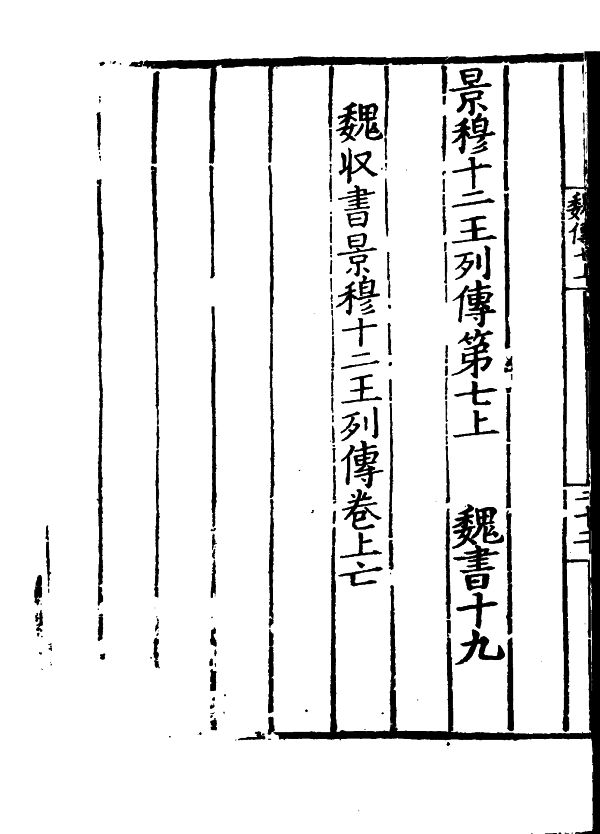 景穆十二王列傳第七上　魏書十九
魏収書景穆十二王列傳卷上亡